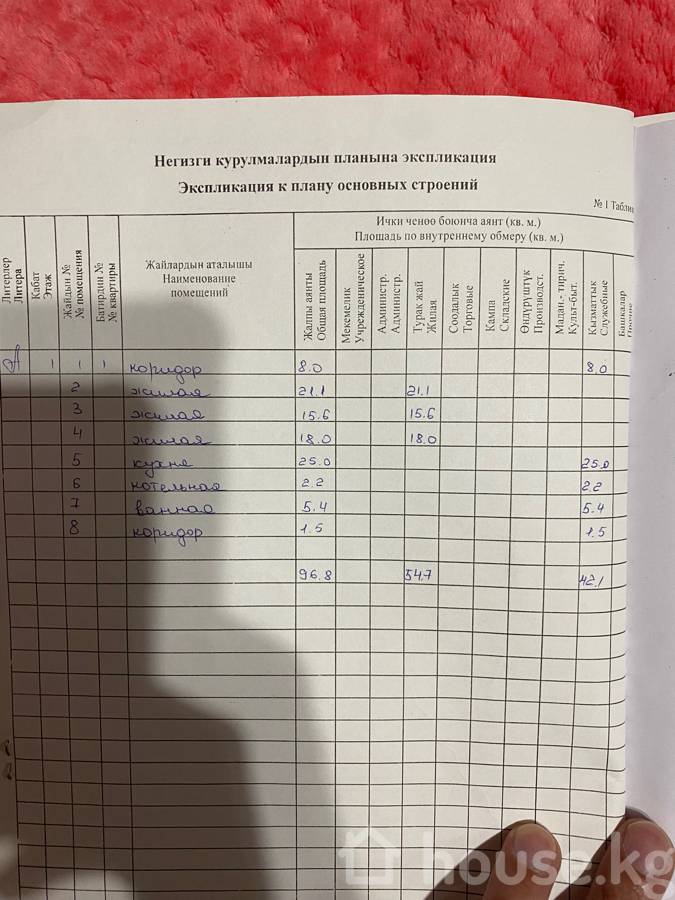 Негизги курулмалардын планына экспликация
Экспликация к плану основных строений
№ 1 Таблиц
Литерлер Литера
Кабат Этаж
Жайдын № № помещения
Батирдин № № квартиры
Жайлардын аталышы
Наименование
помещений
Ички ченөө боюнча аянт (кв. м.)
Площадь по внутреннему обмеру (кв. м.)
Жалпы аянты Общая площадь
Мекемелик Учрежденическое
Администр. Администр.
Турак жай Жилая
Соодалык Торговые
Кампа Складские
Өндүрүштүк Производст.
Мадан.- тирич. Культ-быт.
Кызматтык Служебные
Башкалар Прочие
А 1 1 1 коридор 8.0 8.0
2 жилая 21.1 21.1
3 жилая 15.6 15.6
4 жилая 18.0 18.0
5 кухня 25.0 25.0
6 котельная 2.2 2.2
7 ванная 5.4 5.4
8 коридор 1.5 1.5
96.8 54.7 42.1
house.kg